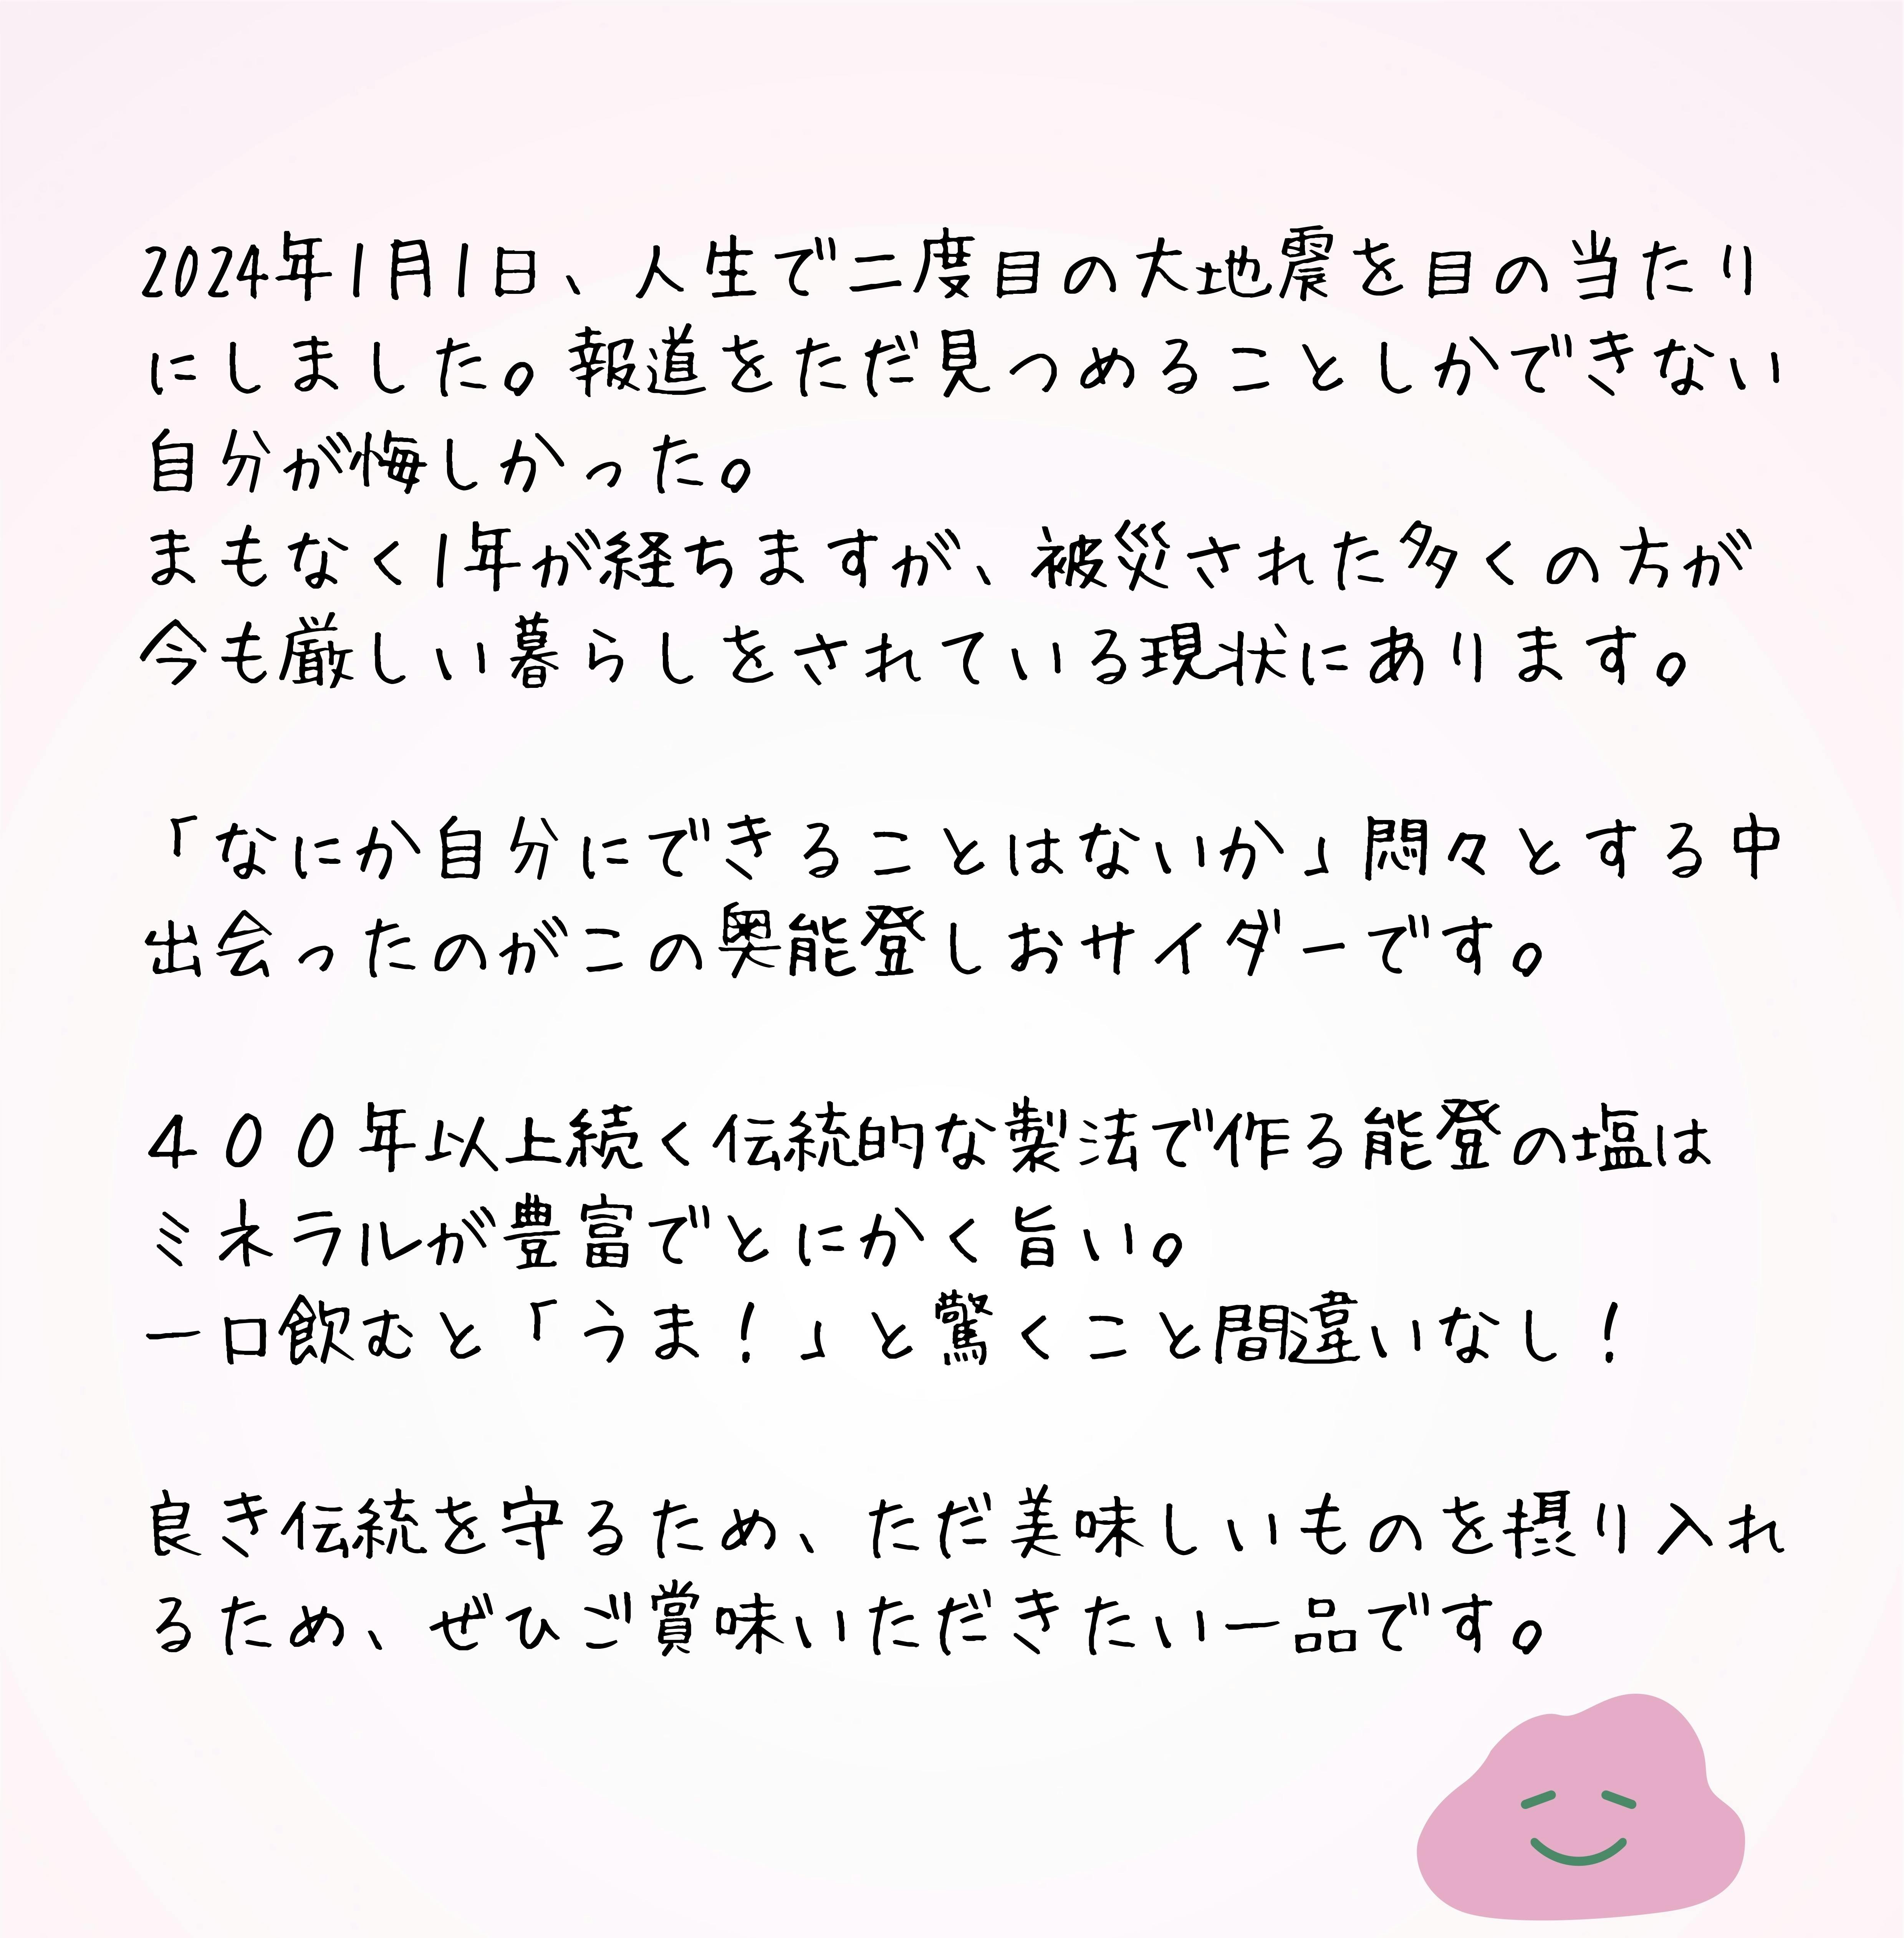 2024年1月1日、人生で二度目の大地震を目の当たり
にしました。報道をただ見つめることしかできない
自分が悔しかった。
まもなく1年が経ちますが、被災された多くの方が
今も厳しい暮らしをされている現状にあります。
「なにか自分にできることはないか」悶々とする中
出会ったのがこの奥能登しおサイダーです。
４００年以上続く伝統的な製法で作る能登の塩は
ミネラルが豊富でとにかく旨い。
一口飲むと「うま！」と驚くこと間違いなし！
良き伝統を守るため、ただ美味しいものを摂り入れ
るため、ぜひご賞味いただきたい一品です。